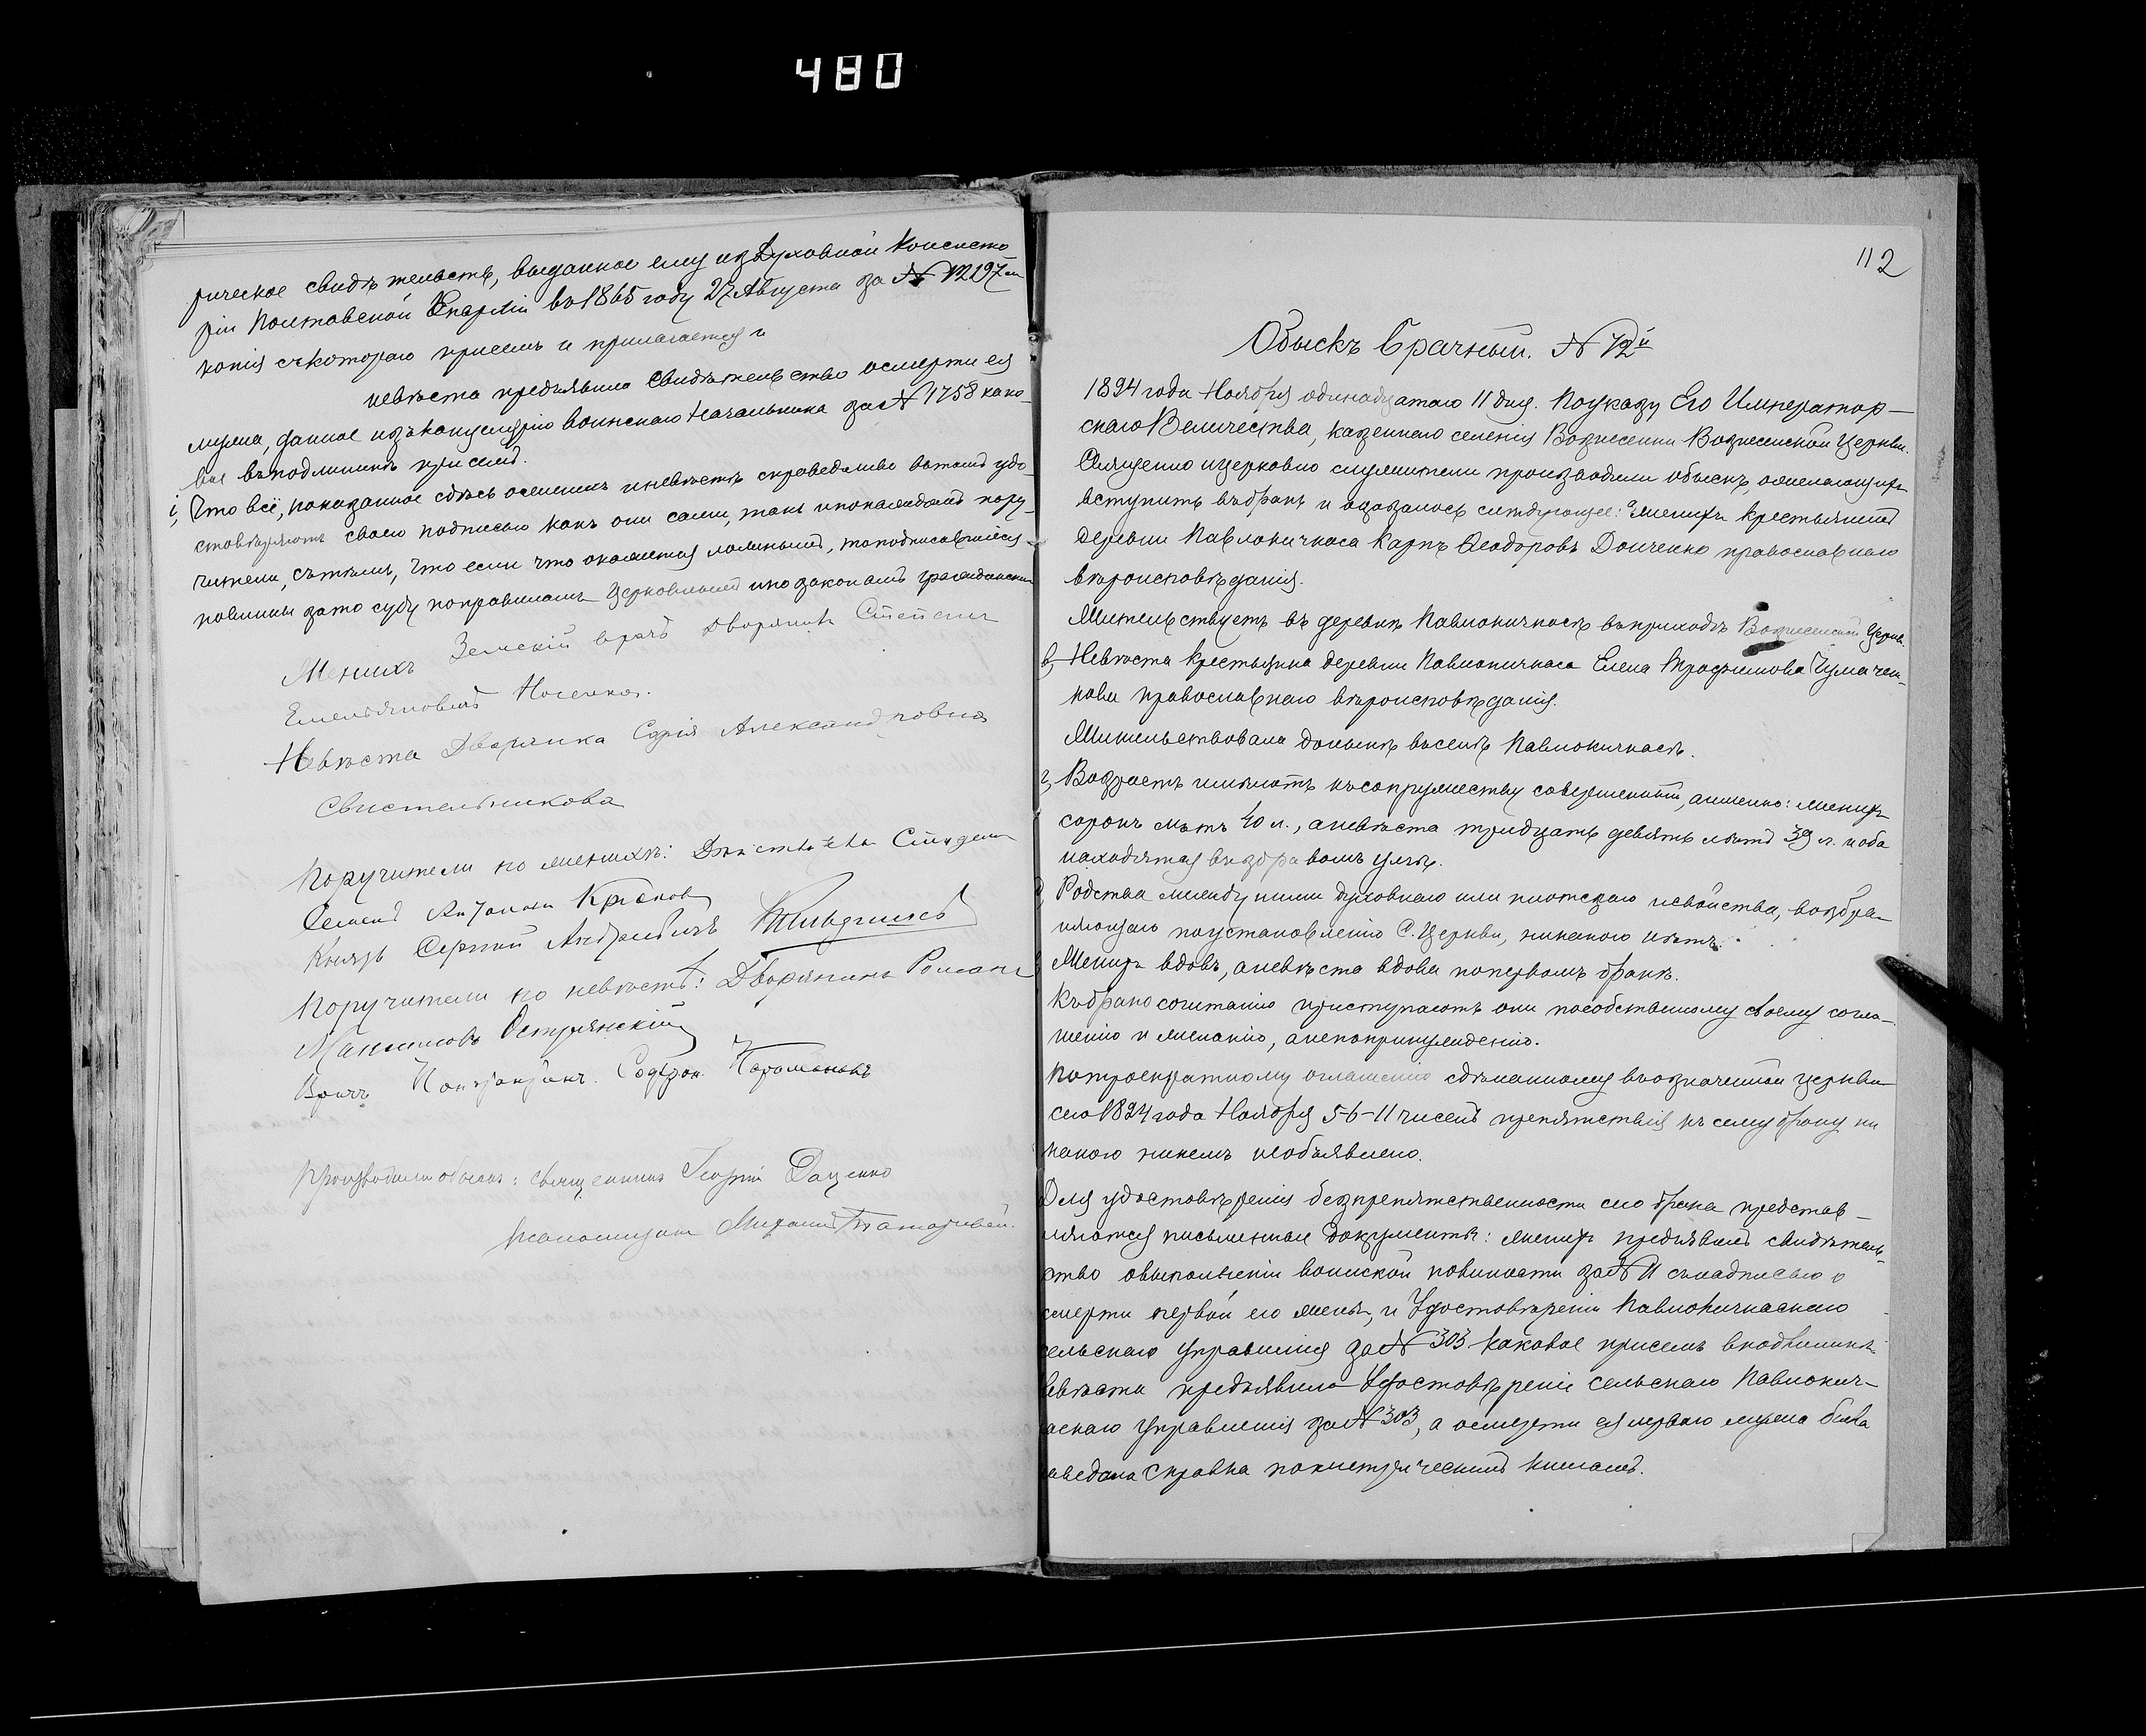 480
рическое свидѣтельство, выданное ему изъ Духовной Консисто
ріи Полтавской Епархіи въ 1865 году 27 Августа за № 12197мъ
копія съ котораго присемъ и прилагается и
невѣста предъявила свидѣтельство о смерти ея
мужа, данное изъ канцеляріи Воинскаго Начальника за № 1758 како-
вое въ подлинникѣ присемъ.
і, Что всё, показанное здѣсь о женихѣ и невѣстѣ справедливо въ томъ удо-
стовѣряютъ своею подписью какъ они сами, такъ и по каждомъ пору-
чители, съ тѣмъ, что если что окажется ложнымъ, то подписавшіеся
повинны за то суду по правиламъ Церковнымъ и по законамъ гражданскимъ
Женихъ Земскій врачъ Дворянинъ Степанъ
Емельяновъ Носенко.
Невѣста Дворянка Софія Александровна
Свистельникова
Поручители по женихѣ: Студентъ
Семенъ Антоновъ
Князь Сергѣй Андреевичъ
Поручители по невѣстѣ: Дворянинъ Романъ
Максимовъ Острянскій
Врачъ Карамановъ
Производили обыскъ: священникъ Георгій Даценко
псаломщикъ Михаилъ
112
Обыскъ брачный. № 72й
1894 года Ноября одинадцатаго 11 дня. По указу Его Император-
скаго Величества, казеннаго селенія Вознесенки Вознесенской Церкви.
Священно и церковно служители производили обыскъ, о желающихъ
вступить въ бракъ и оказалось слѣдующее: а, Женихъ крестьянинъ
деревни Павлокичкаса Карпъ Ѳеодоровъ Донченко православнаго
вѣроисповѣданія.
Жительствуетъ въ деревнѣ Павлокичкасѣ въ приходѣ Вознесенской Церкви.
в, Невѣста крестьянка деревни Павлокичкаса Елена Трофимова Чумачен-
кова православнаго вѣроисповѣданія.
Жительствовала донынѣ въ селѣ Павлокичкасѣ.
г, Возрастъ имѣютъ къ супружеству совершенный, а именно: женихъ
сорокъ лѣтъ 40 л., а невѣста тридцать девять лѣтъ 39 л. и оба
находятся въ здравомъ умѣ.
Родства между ними духовнаго или плотскаго и свойства, возбра-
няющаго по установленію С. Церкви, никакого нѣтъ.
Женихъ вдовъ, а невѣста вдова по первомъ бракѣ.
Къ бракосочитанію приступаютъ они по собственному своему согла-
шенію и желанію, а не по принужденію.
По троекратному оглашенію сдѣланному въ означенной церкви
сего 1894 года Ноября 5-6-11 чиселъ препятствія къ сему браку ни
какого никемъ не объявлено.
Для удостовѣренія безпрепятственности сего брака представ-
ляются письменные документы: женихъ предъявилъ свидѣтель-
ство о выполненіи воинской повинности за № 11 съ надписью о
смерти первой его жены, и Удостовѣреніи Павлокичкаскаго
сельскаго Управленія за № 303 каковое присемъ в подлинникѣ
невѣста предъявила Удостовѣреніе сельскаго Павлокич-
каскаго Управленія за № 303, а о смерти ея перваго мужа была
наведена справка по метрическимъ книгамъ.